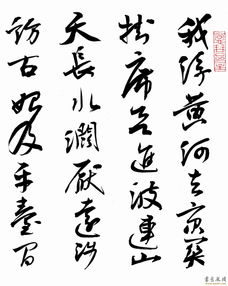 我浮黃河去京闕
掛席欲進波連山
天長水濶厭遠涉
訪古始及平臺間